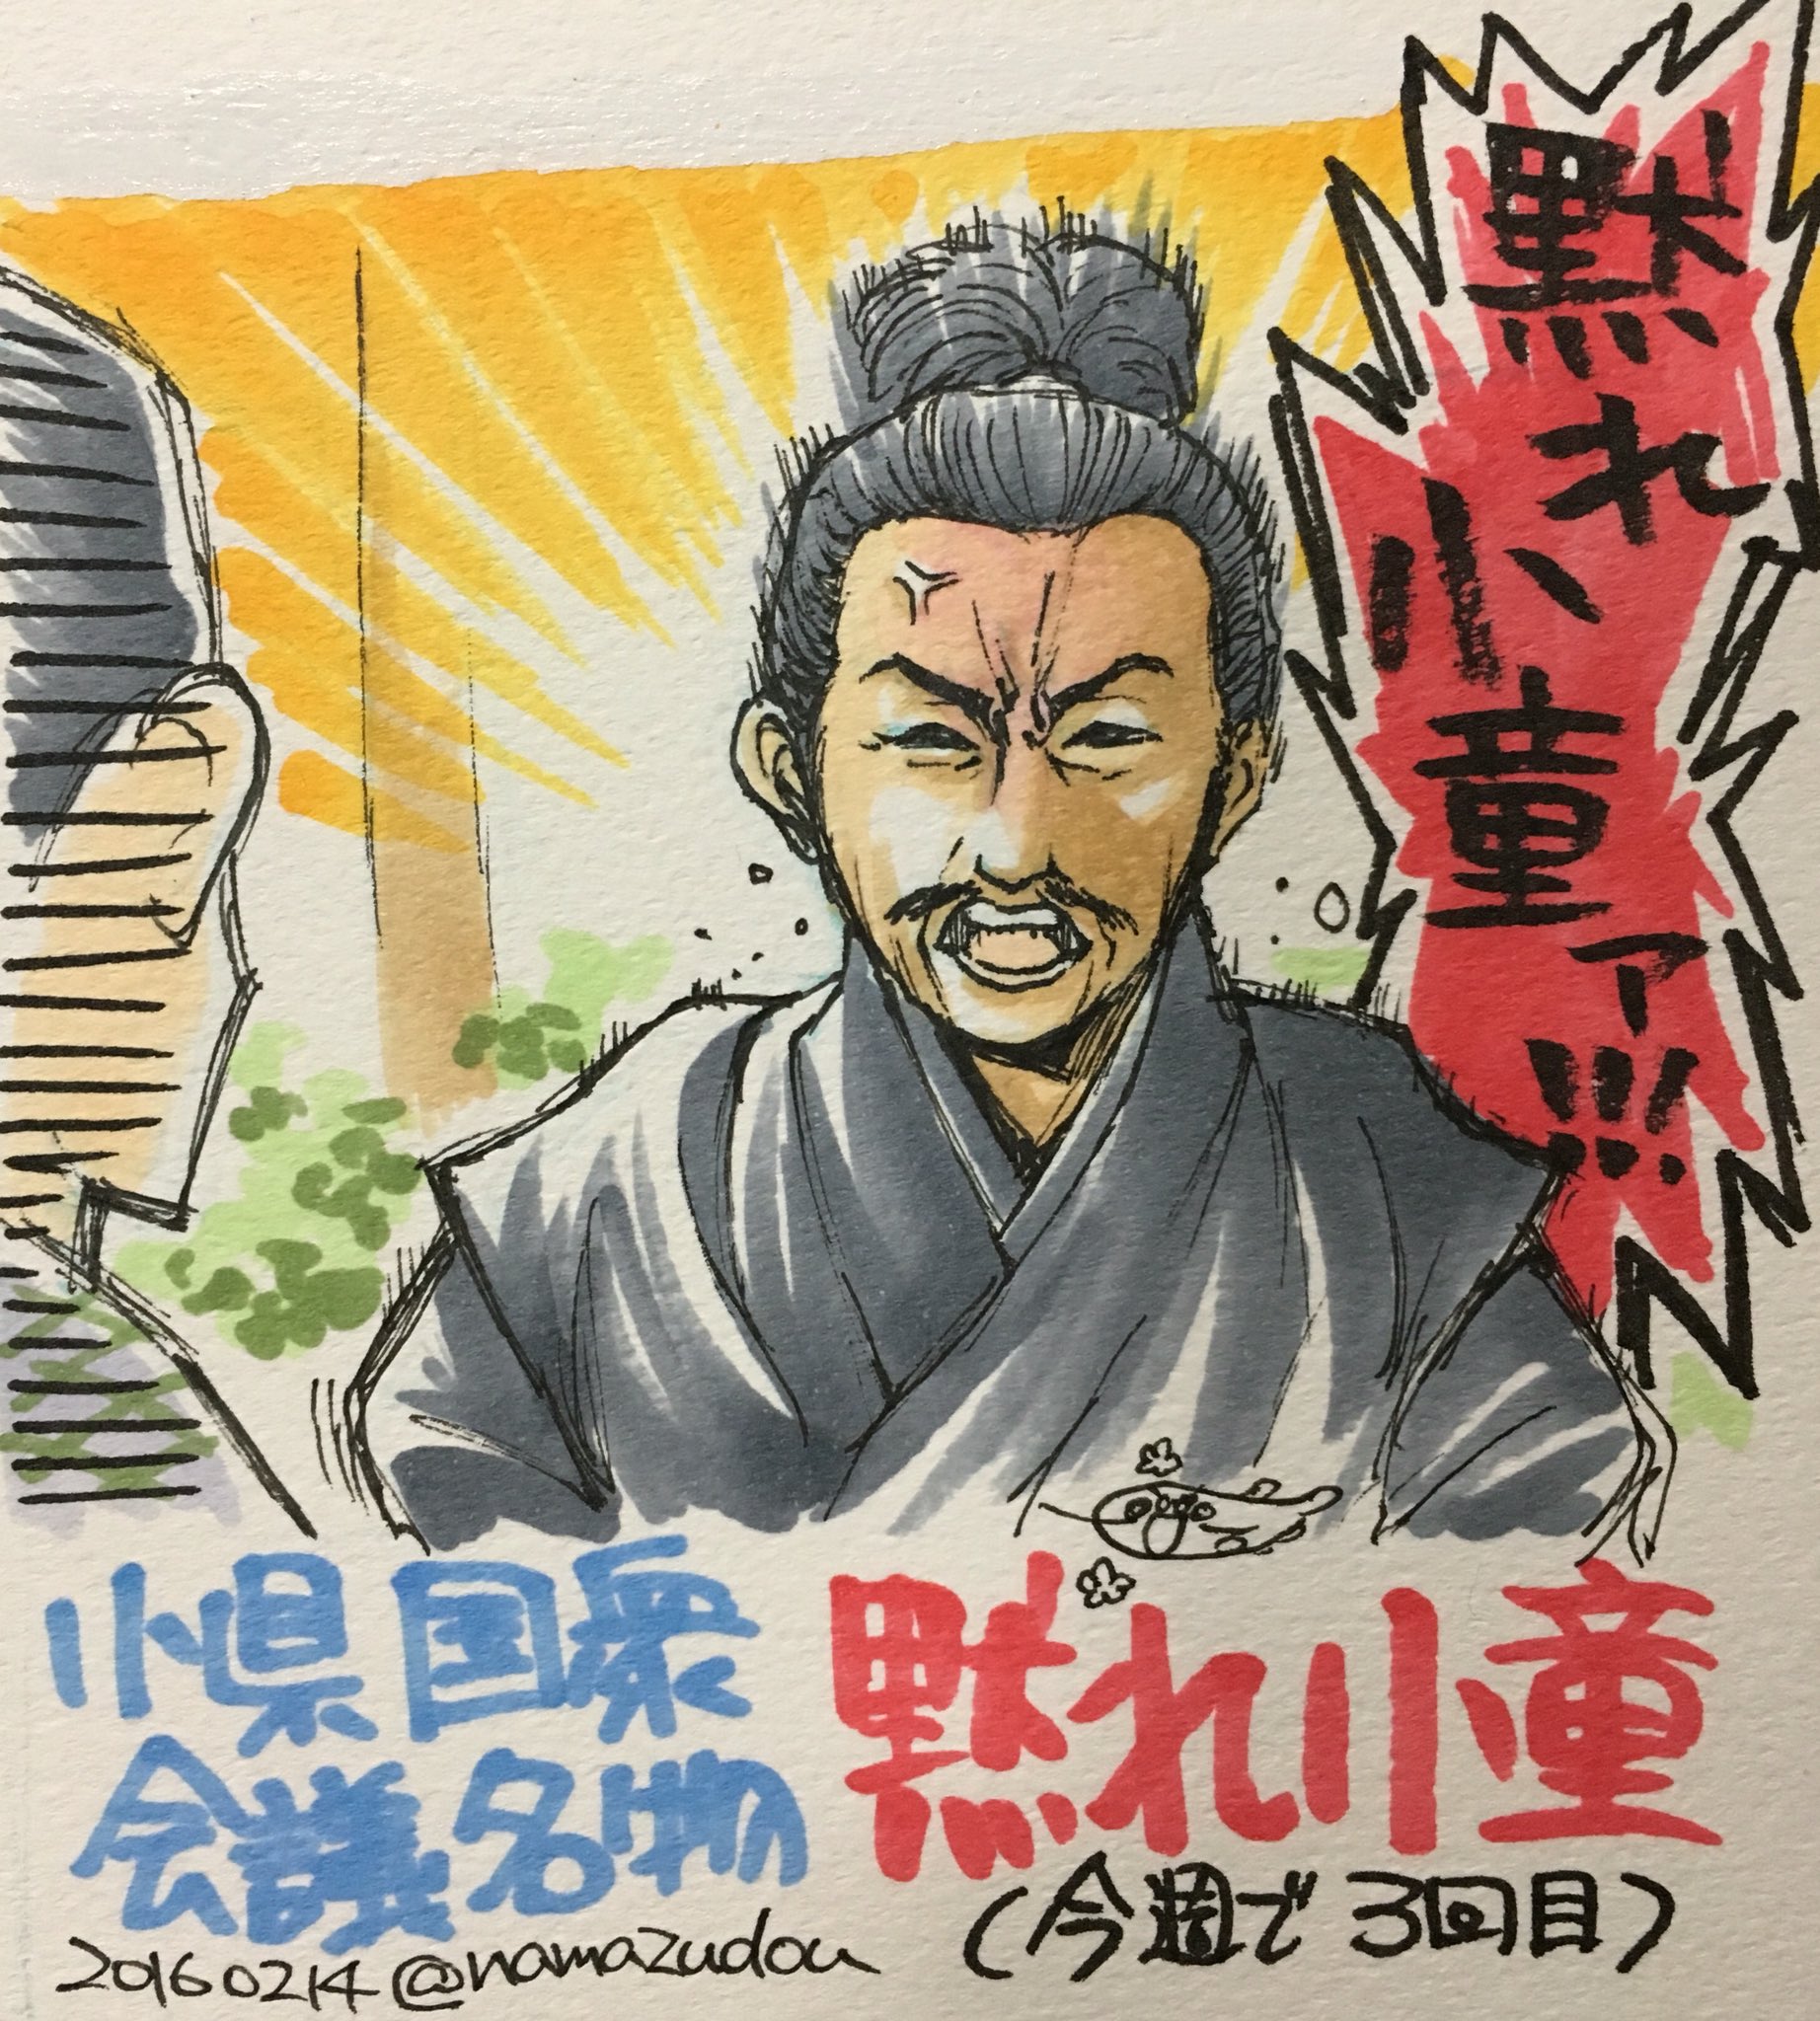 黙れ
小童ァ!!!
小県国衆
会議名物
黙れ小童
(今週で3回目)
20160214 @namazudou